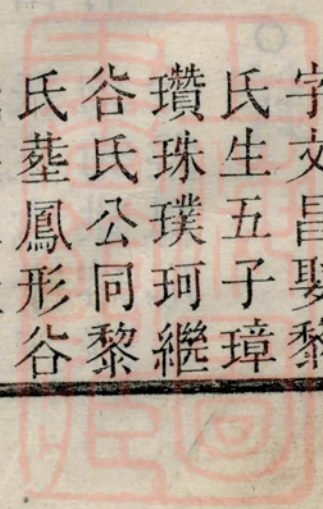 字文昌娶黎
氏生五子璋
瓚珠璞珂繼
谷氏公同黎
氏塟鳳形谷